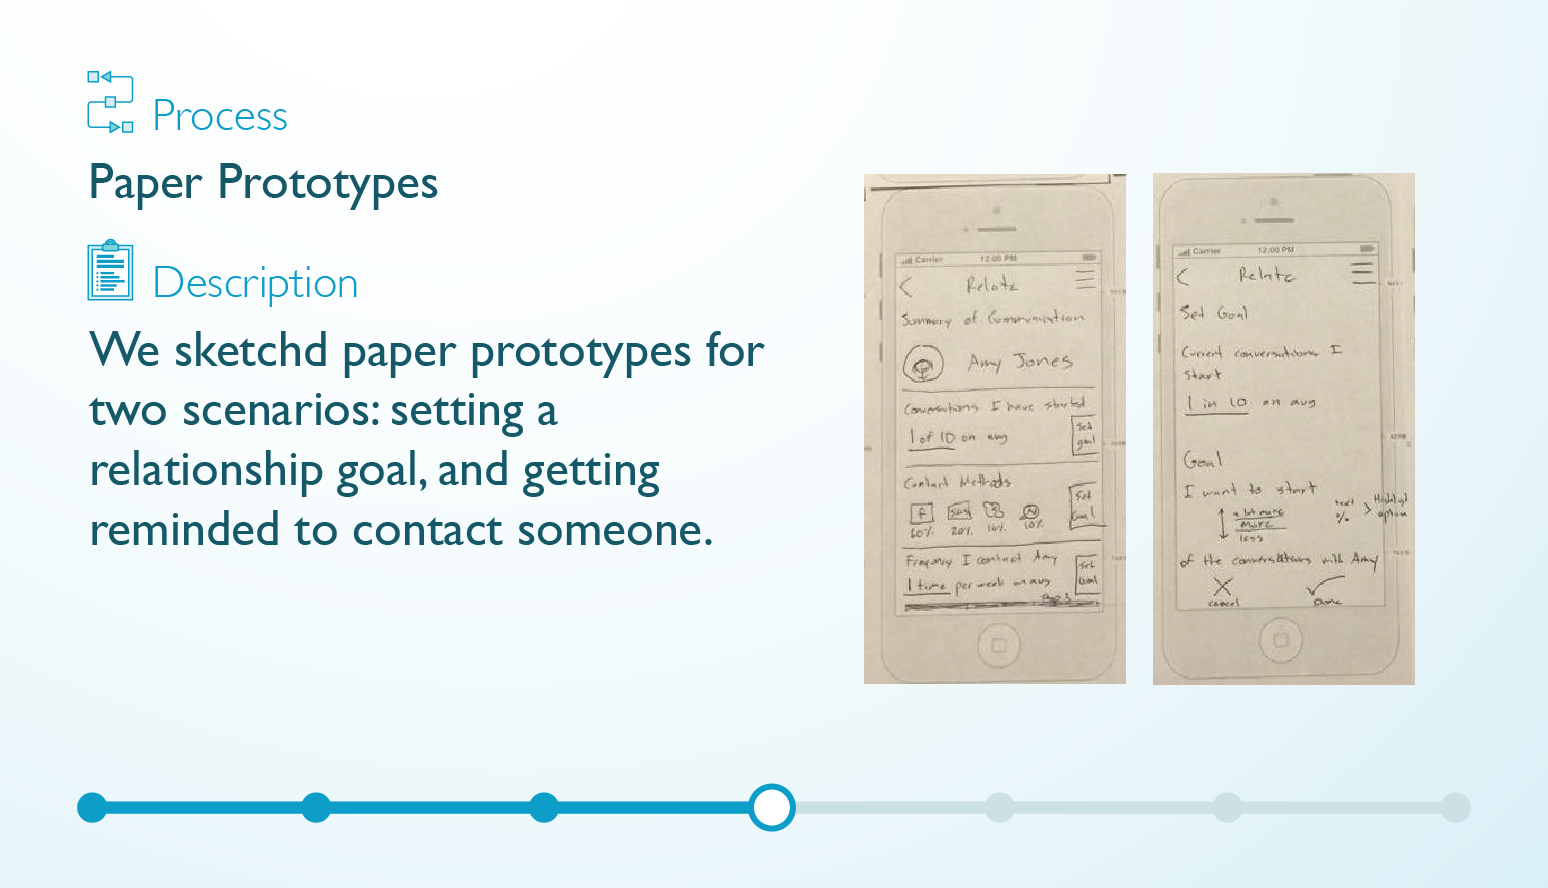 Process
Paper Prototypes
Description
We sketchd paper prototypes for
two scenarios: setting a
relationship goal, and getting
reminded to contact someone.
Carrier 12:00 PM
Relate
Summary of Communication
Amy Jones
Conversations I have started
1 of 10 on avg
Set
goal
Contact Methods
Set
Goal
f SMS
60% 20% 10% 10%
Frequency I contact Amy
1 time per week on avg
Set
Goal
Carrier 12:00 PM
Relate
Set Goal
Current conversations I
start
1 in 10 on avg
Goal
I want to start
a lot more
more
less
text
%
Highlight
option
of the conversations with Amy
cancel
Done